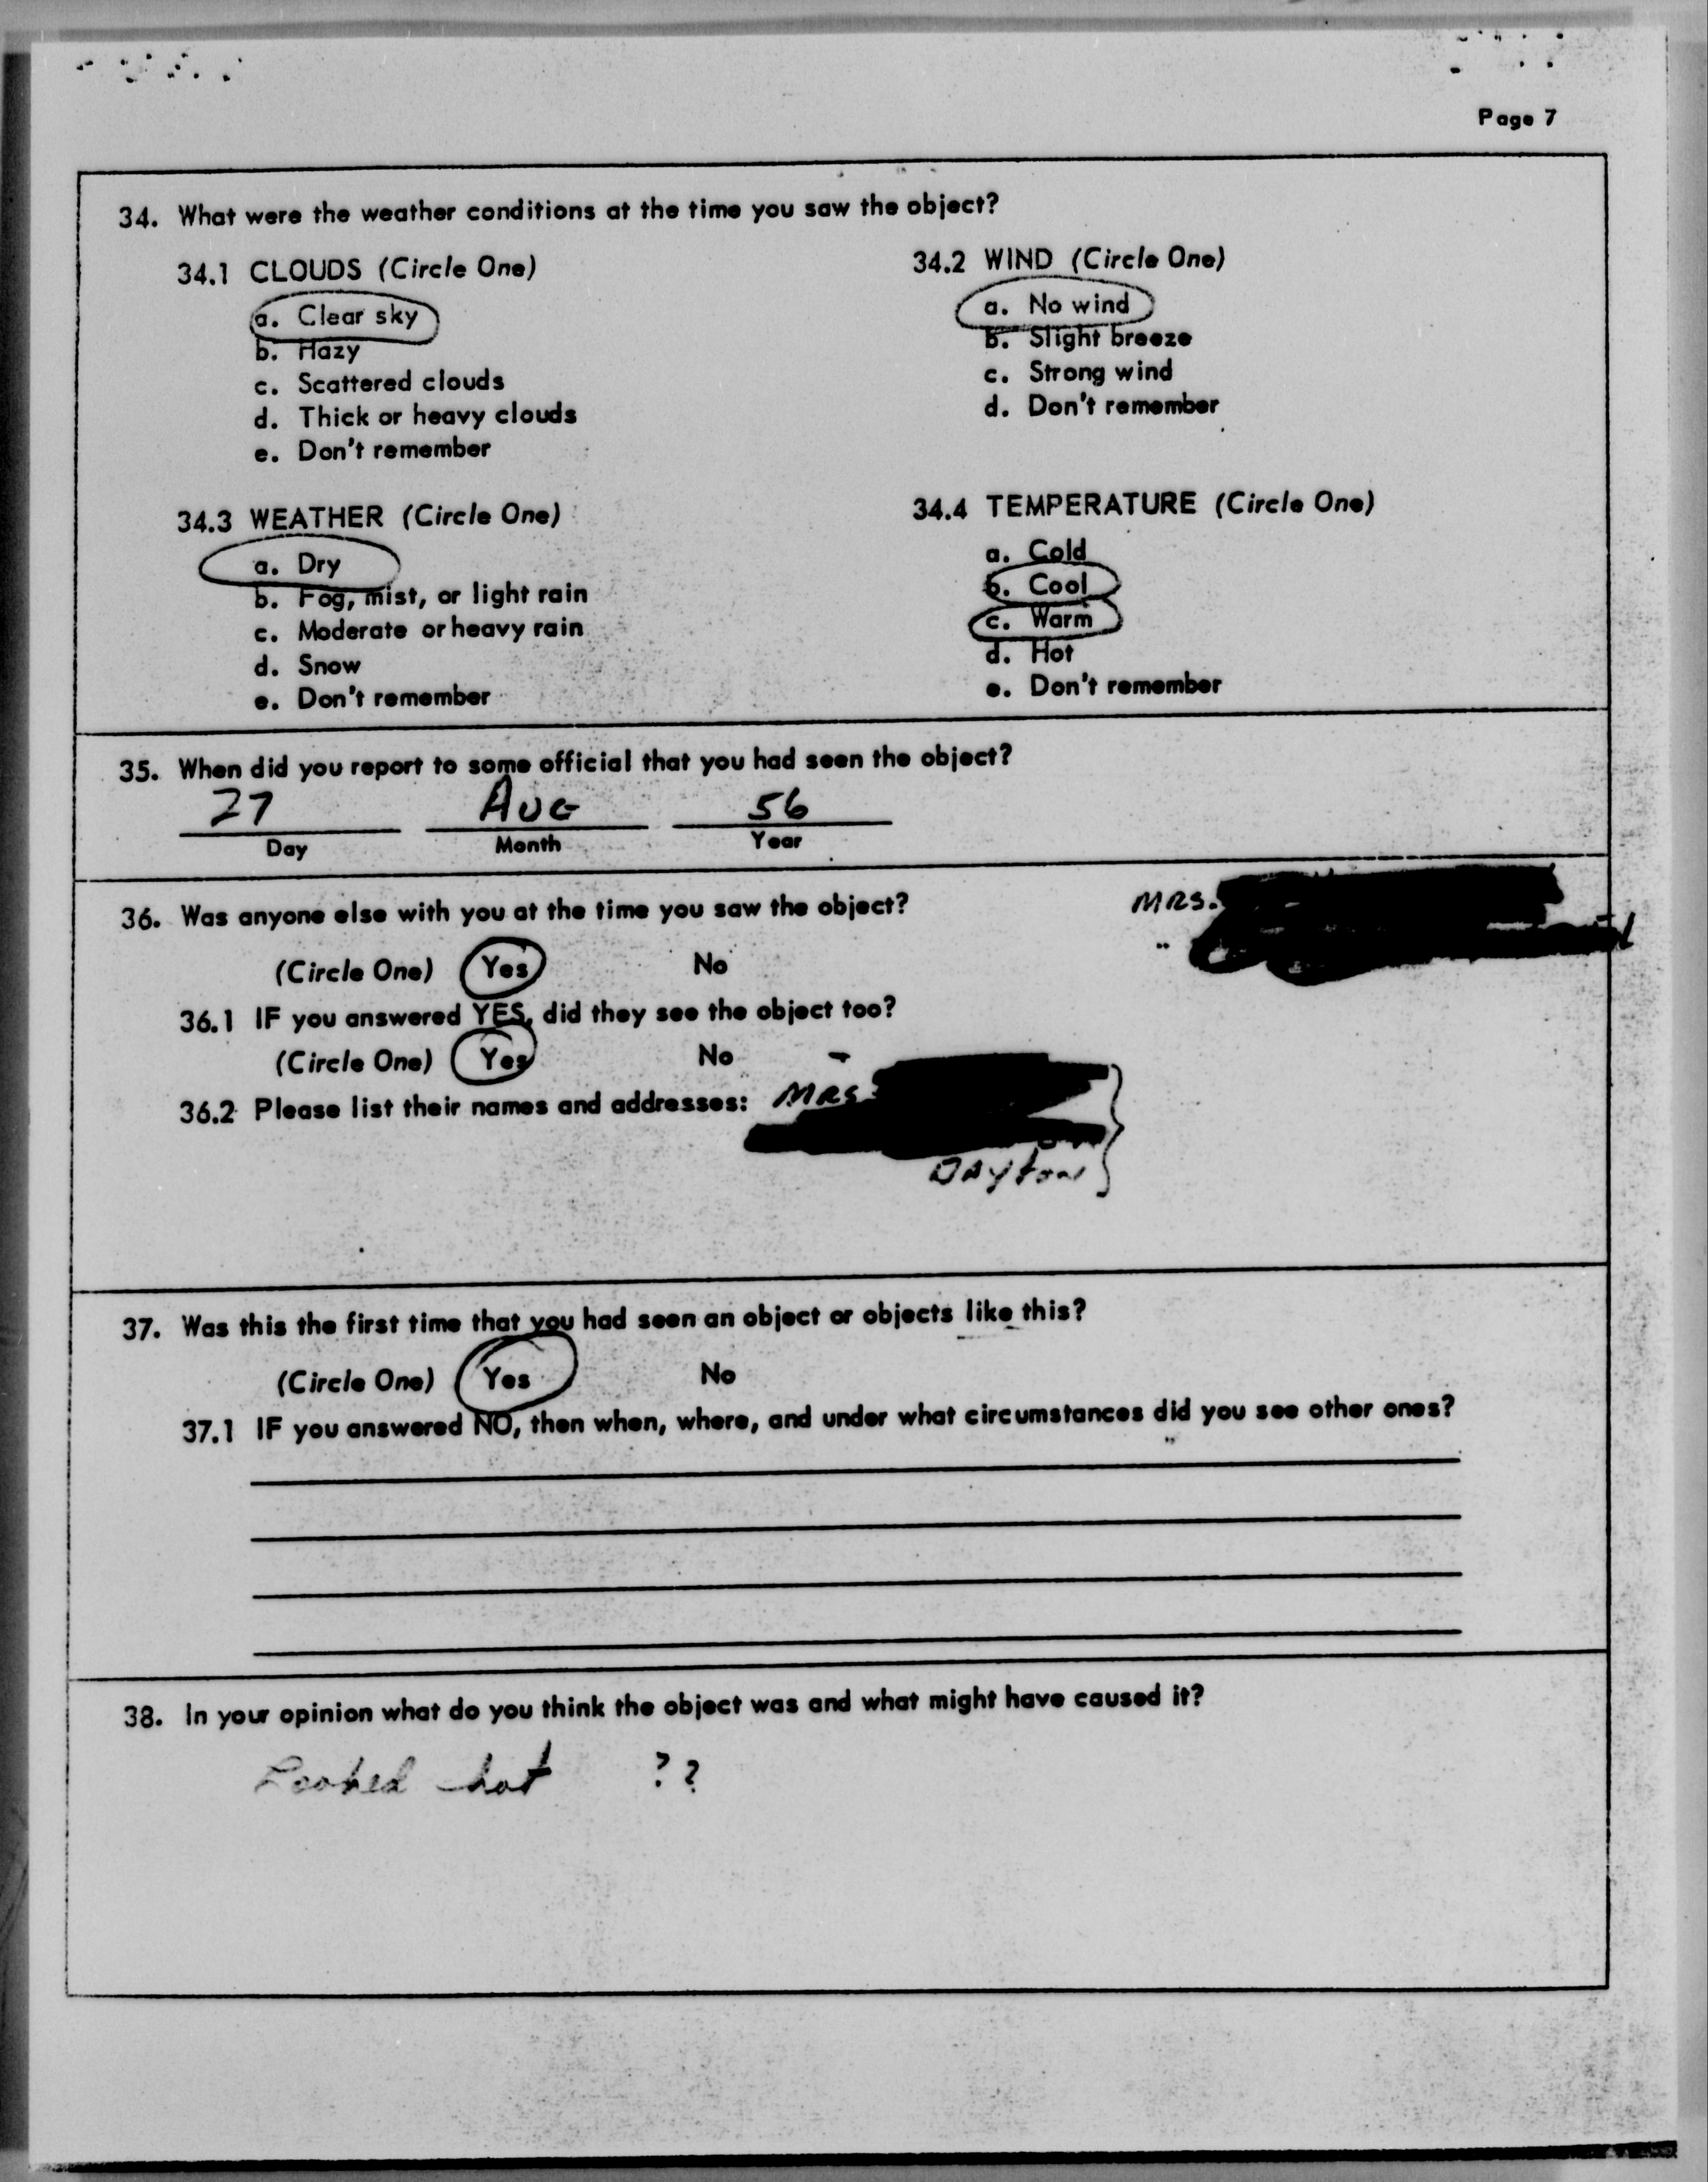 Page 7
34. What were the weather conditions at the time you saw the object?
34.1 CLOUDS (Circle One)
a. Clear sky
b. Hazy
c. Scattered clouds
d. Thick or heavy clouds
e. Don't remember
34.2 WIND (Circle One)
a. No wind
b. Slight breeze
c. Strong wind
d. Don't remember
34.3 WEATHER (Circle One)
a. Dry
b. Fog, mist, or light rain
c. Moderate or heavy rain
d. Snow
e. Don't remember
34.4 TEMPERATURE (Circle One)
a. Cold
b. Cool
c. Warm
d. Hot
e. Don't remember
35. When did you report to some official that you had seen the object?
27 AUG 56
Day Month Year
36. Was anyone else with you at the time you saw the object?
MRS.
(Circle One) Yes No
36.1 IF you answered YES, did they see the object too?
(Circle One) Yes No
36.2 Please list their names and addresses: MRS
DAYton
37. Was this the first time that you had seen an object or objects like this?
(Circle One) Yes No
37.1 IF you answered NO, then when, where, and under what circumstances did you see other ones?
38. In your opinion what do you think the object was and what might have caused it?
Looked hot ??